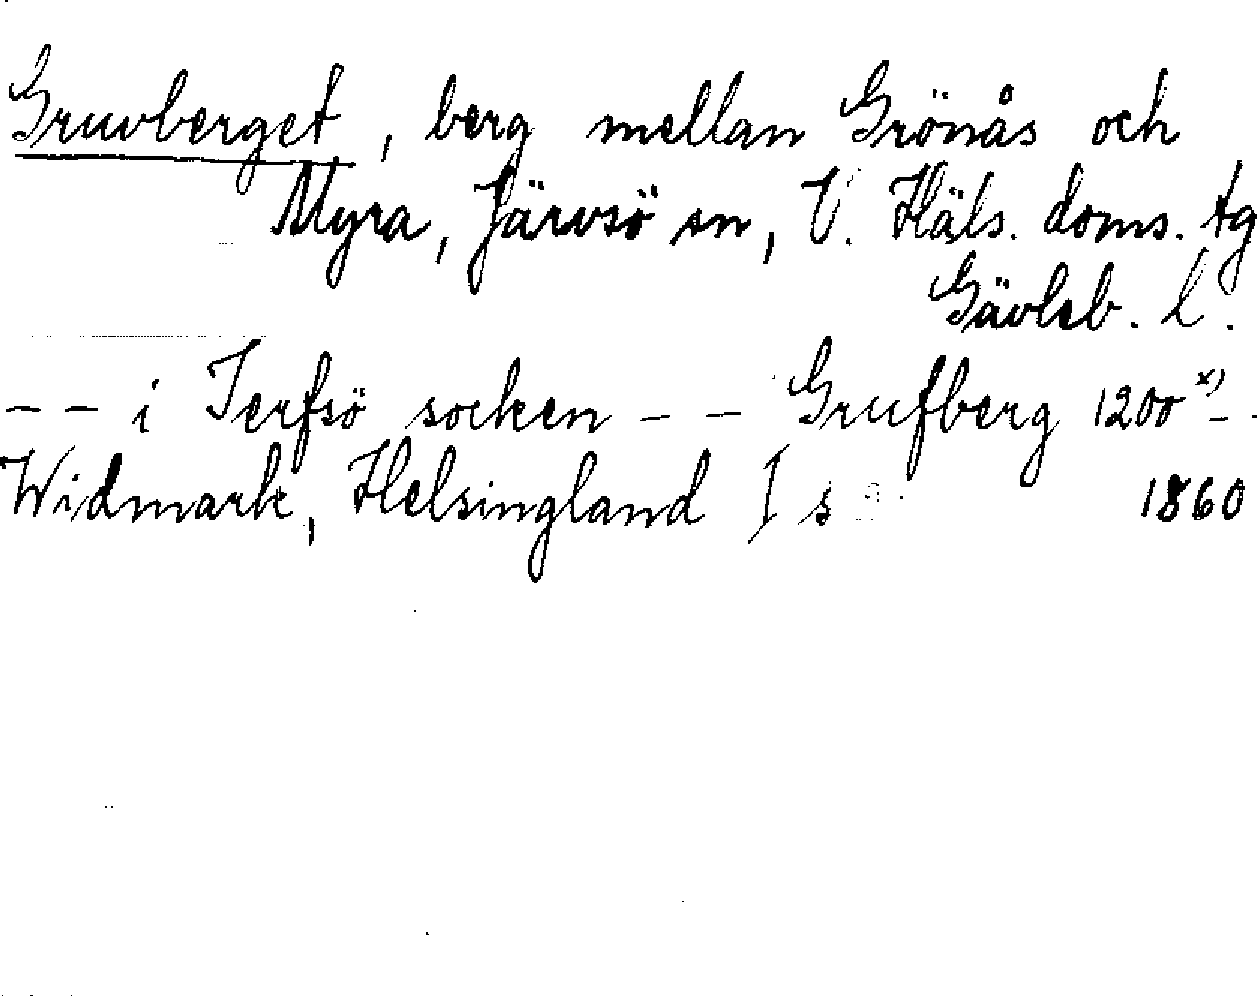 Gruvberget, berg mellan Grönås och
Myra, Järvsö sn, V. Häls. doms. tg
Gävleb. l.
-- i Jerfsö socken -- Grufberg 1200 x) --
Widmark, Helsingland I s 1860